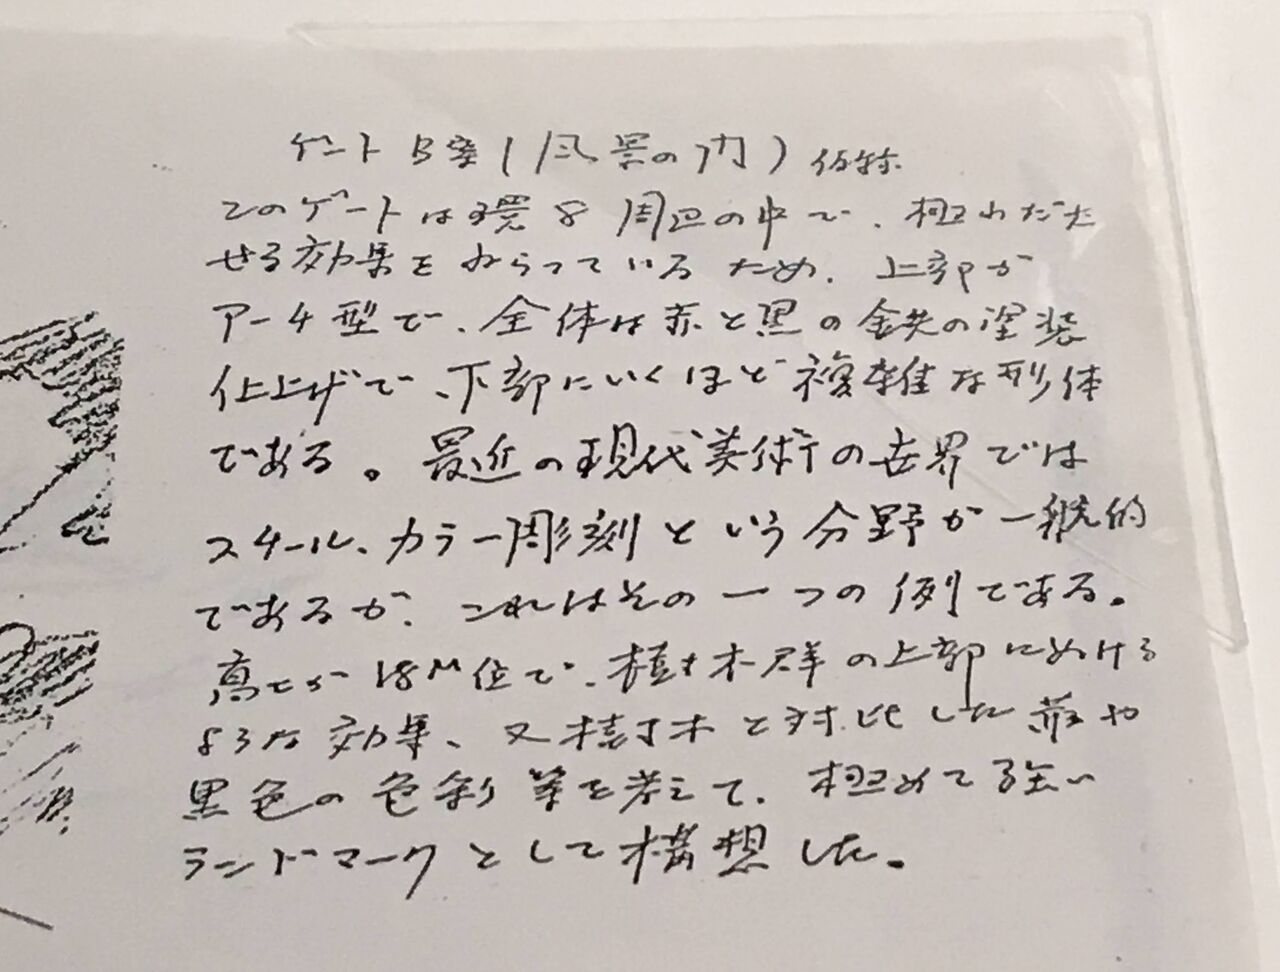 ゲートB案(風景の門)仮称
このゲートは環8周辺の中で、極わだた
せる効果をねらっているため、上部が
アーチ型で、全体は赤と黒の鉄の塗装
仕上げで、下部にいくほど複雑な形体
である。最近の現代美術の世界では
スチール、カラー彫刻という分野が一般的
であるが、これはその一つの例である。
高さが18M位で、樹木群の上部にぬける
ような効果、又樹木と対比した赤や
黒色の色彩等を考えて、極めて強い
ランドマークとして構想した。